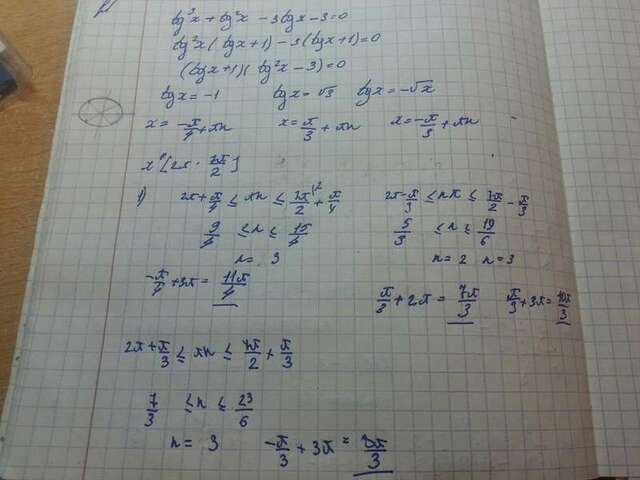 tg³x + tg²x - 3tgx - 3 = 0
tg²x(tgx+1) - 3(tgx+1) = 0
(tgx+1)(tg²x - 3) = 0
tgx = -1 tgx = √3 tgx = -√x
x = -π/4 + πn x = π/3 + πn x = -π/3 + πn
x [2π · 7π/2]
1) 2π + π/4 ≤ πn ≤ 7π/2 + π/4 2π - π/3 ≤ πn ≤ 7π/2 - π/3
9/4 ≤ n ≤ 15/4 5/3 ≤ n ≤ 19/6
n = 3 n = 2 n = 3
-π/4 + 3π = 11π/4 π/3 + 2π = 7π/3 π/3 + 3π = 10π/3
2π + π/3 ≤ πn ≤ 7π/2 + π/3
7/3 ≤ n ≤ 23/6
n = 3 -π/3 + 3π = 8π/3